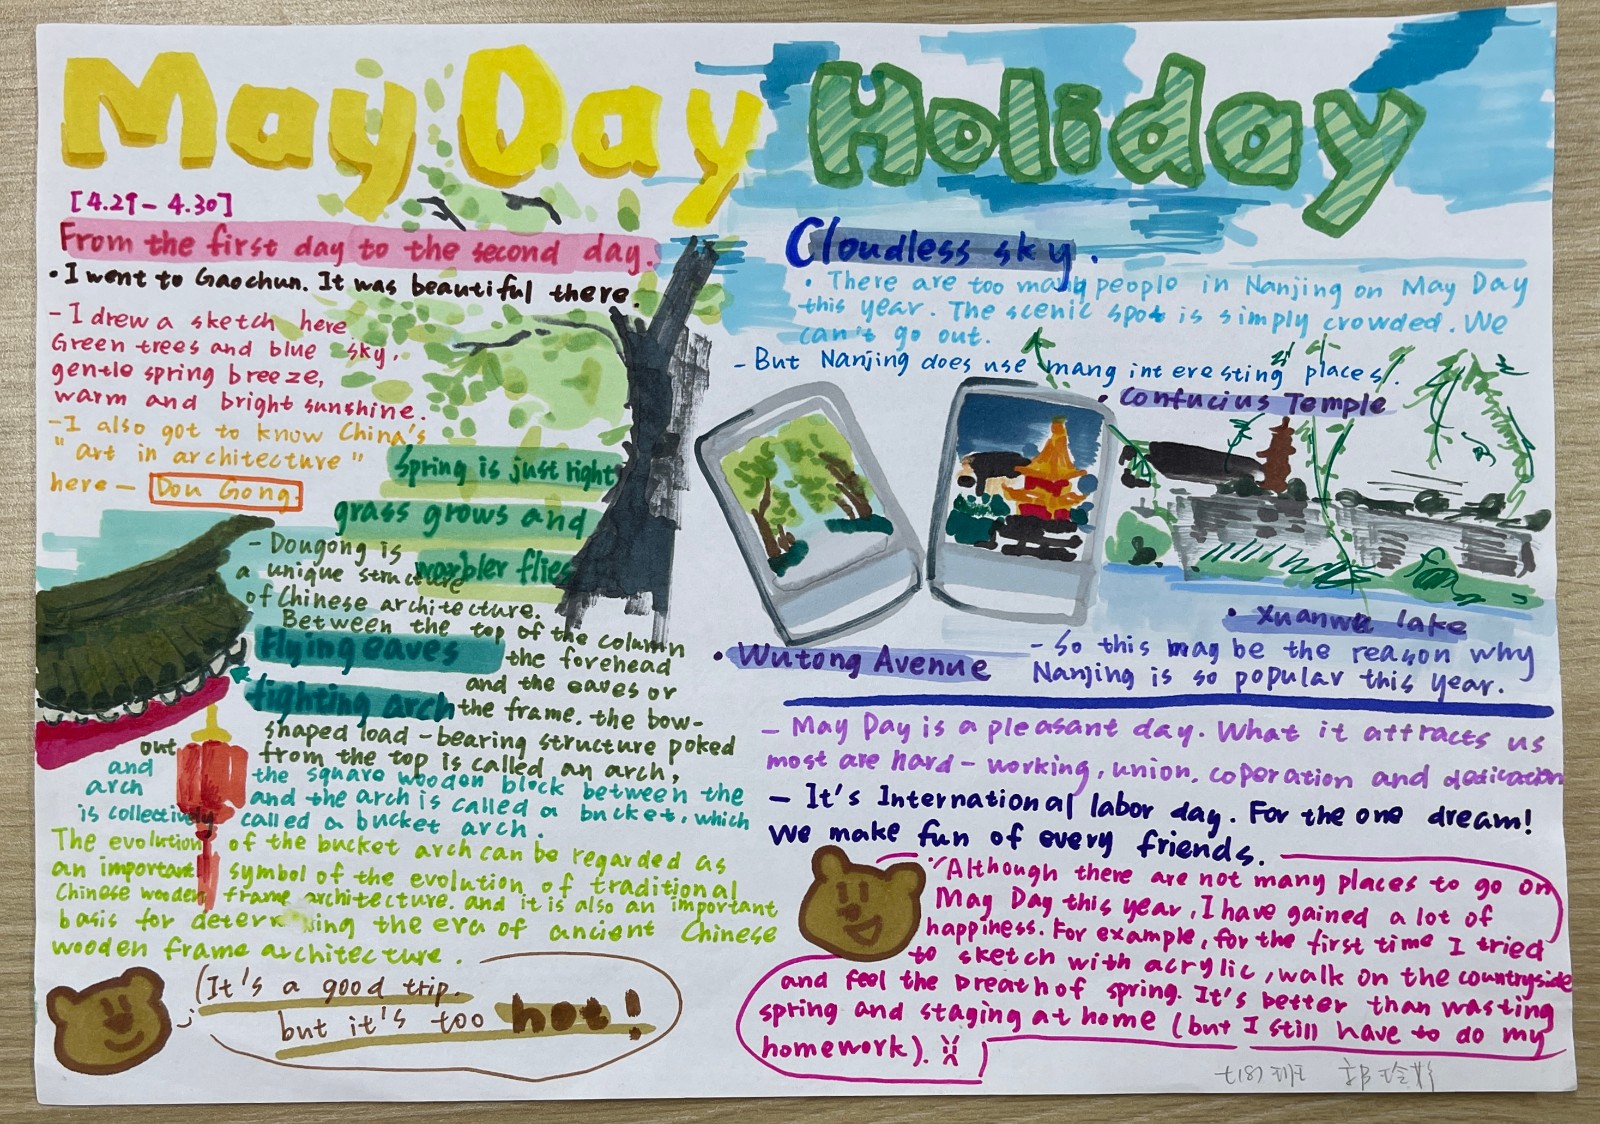 May Day Holiday
[4.29-4.30]
From the first day to the second day.
• I went to Gaochun. It was beautiful there.
- I drew a sketch here
Green trees and blue sky.
gentle spring breeze,
warm and bright sunshine.
- I also got to know China's
"art in architecture"
here — Dou Gong.
Spring is just right
grass grows and
warbler flies
- Dougong is
a unique structure
of Chinese architecture.
Between the top of the column
the forehead
and the eaves or
the frame. the bow-
shaped load-bearing structure poked
out from the top is called an arch,
and the square wooden block between the
arch and the arch is called a bucket, which
is collectively called a bucket arch.
Flying eaves
fighting arch
The evolution of the bucket arch can be regarded as
an important symbol of the evolution of traditional
Chinese wooden frame architecture. and it is also an important
basis for determining the era of ancient Chinese
wooden frame architecture.
(It's a good trip.
but it's too hot!
Cloudless sky.
• There are too many people in Nanjing on May Day
this year. The scenic spot is simply crowded. We
can't go out.
- But Nanjing does use mang interesting places.
• Confucius Temple
• Xuanwu lake
• Wutong Avenue
- So this may be the reason why
Nanjing is so popular this year.
- May Day is a pleasant day. What it attracts us
most are hard-working, union, coperation and dedication
- It's International labor day. For the one dream!
We make fun of every friends.
"Although there are not many places to go on
May Day this year, I have gained a lot of
happiness. For example, for the first time I tried
to sketch with acrylic, walk on the countryside
and feel the breath of spring. It's better than wasting
spring and staging at home (but I still have to do my
homework).
七(8)班 郭玲